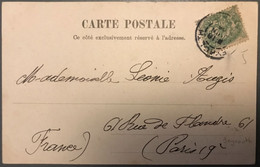 CARTE POSTALE
Ce côté exclusivement réservé à l'adresse.
Mademoiselle Léonie Augis
61 Rue de Flandre 61
(France) Paris 19e